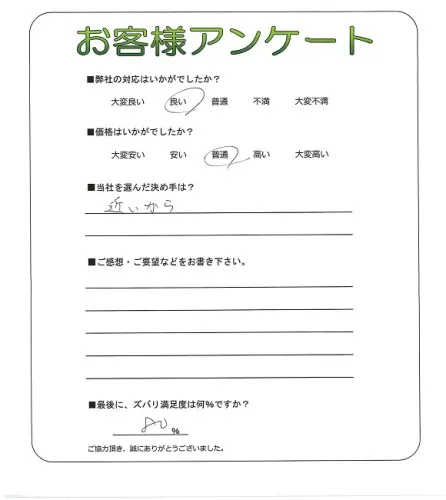 お客様アンケート
■弊社の対応はいかがでしたか？
大変良い 良い 普通 不満 大変不満
■価格はいかがでしたか？
大変安い 安い 普通 高い 大変高い
■当社を選んだ決め手は？
近いから
■ご感想・ご要望などをお書き下さい。
■最後に、ズバリ満足度は何%ですか？
80 %
ご協力頂き、誠にありがとうございました。